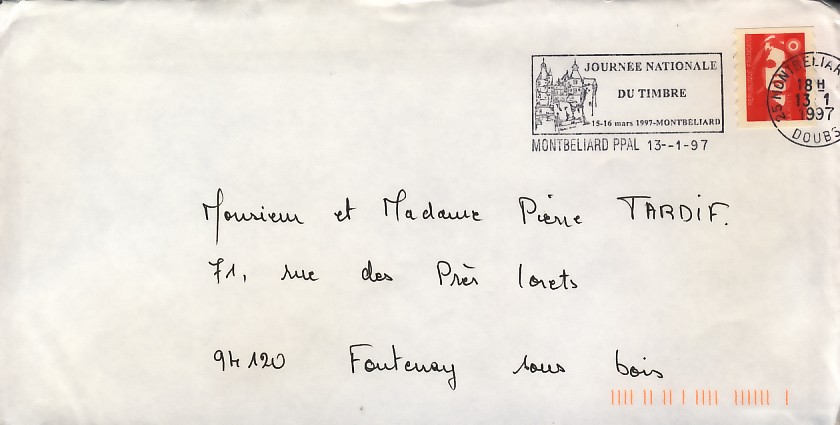 JOURNÉE NATIONALE
DU TIMBRE
15-16 mars 1997-MONTBÉLIARD
MONTBELIARD PPAL 13--1-97
25 MONTBELIAR
18H
13 1
1997
DOUBS
Monsieur et Madame Pierre TARDIF.
71, rue des Près lorets
94120 Fontenay sous bois